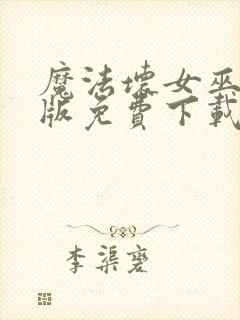 魔法壞女巫
版免費下載
李渠袤